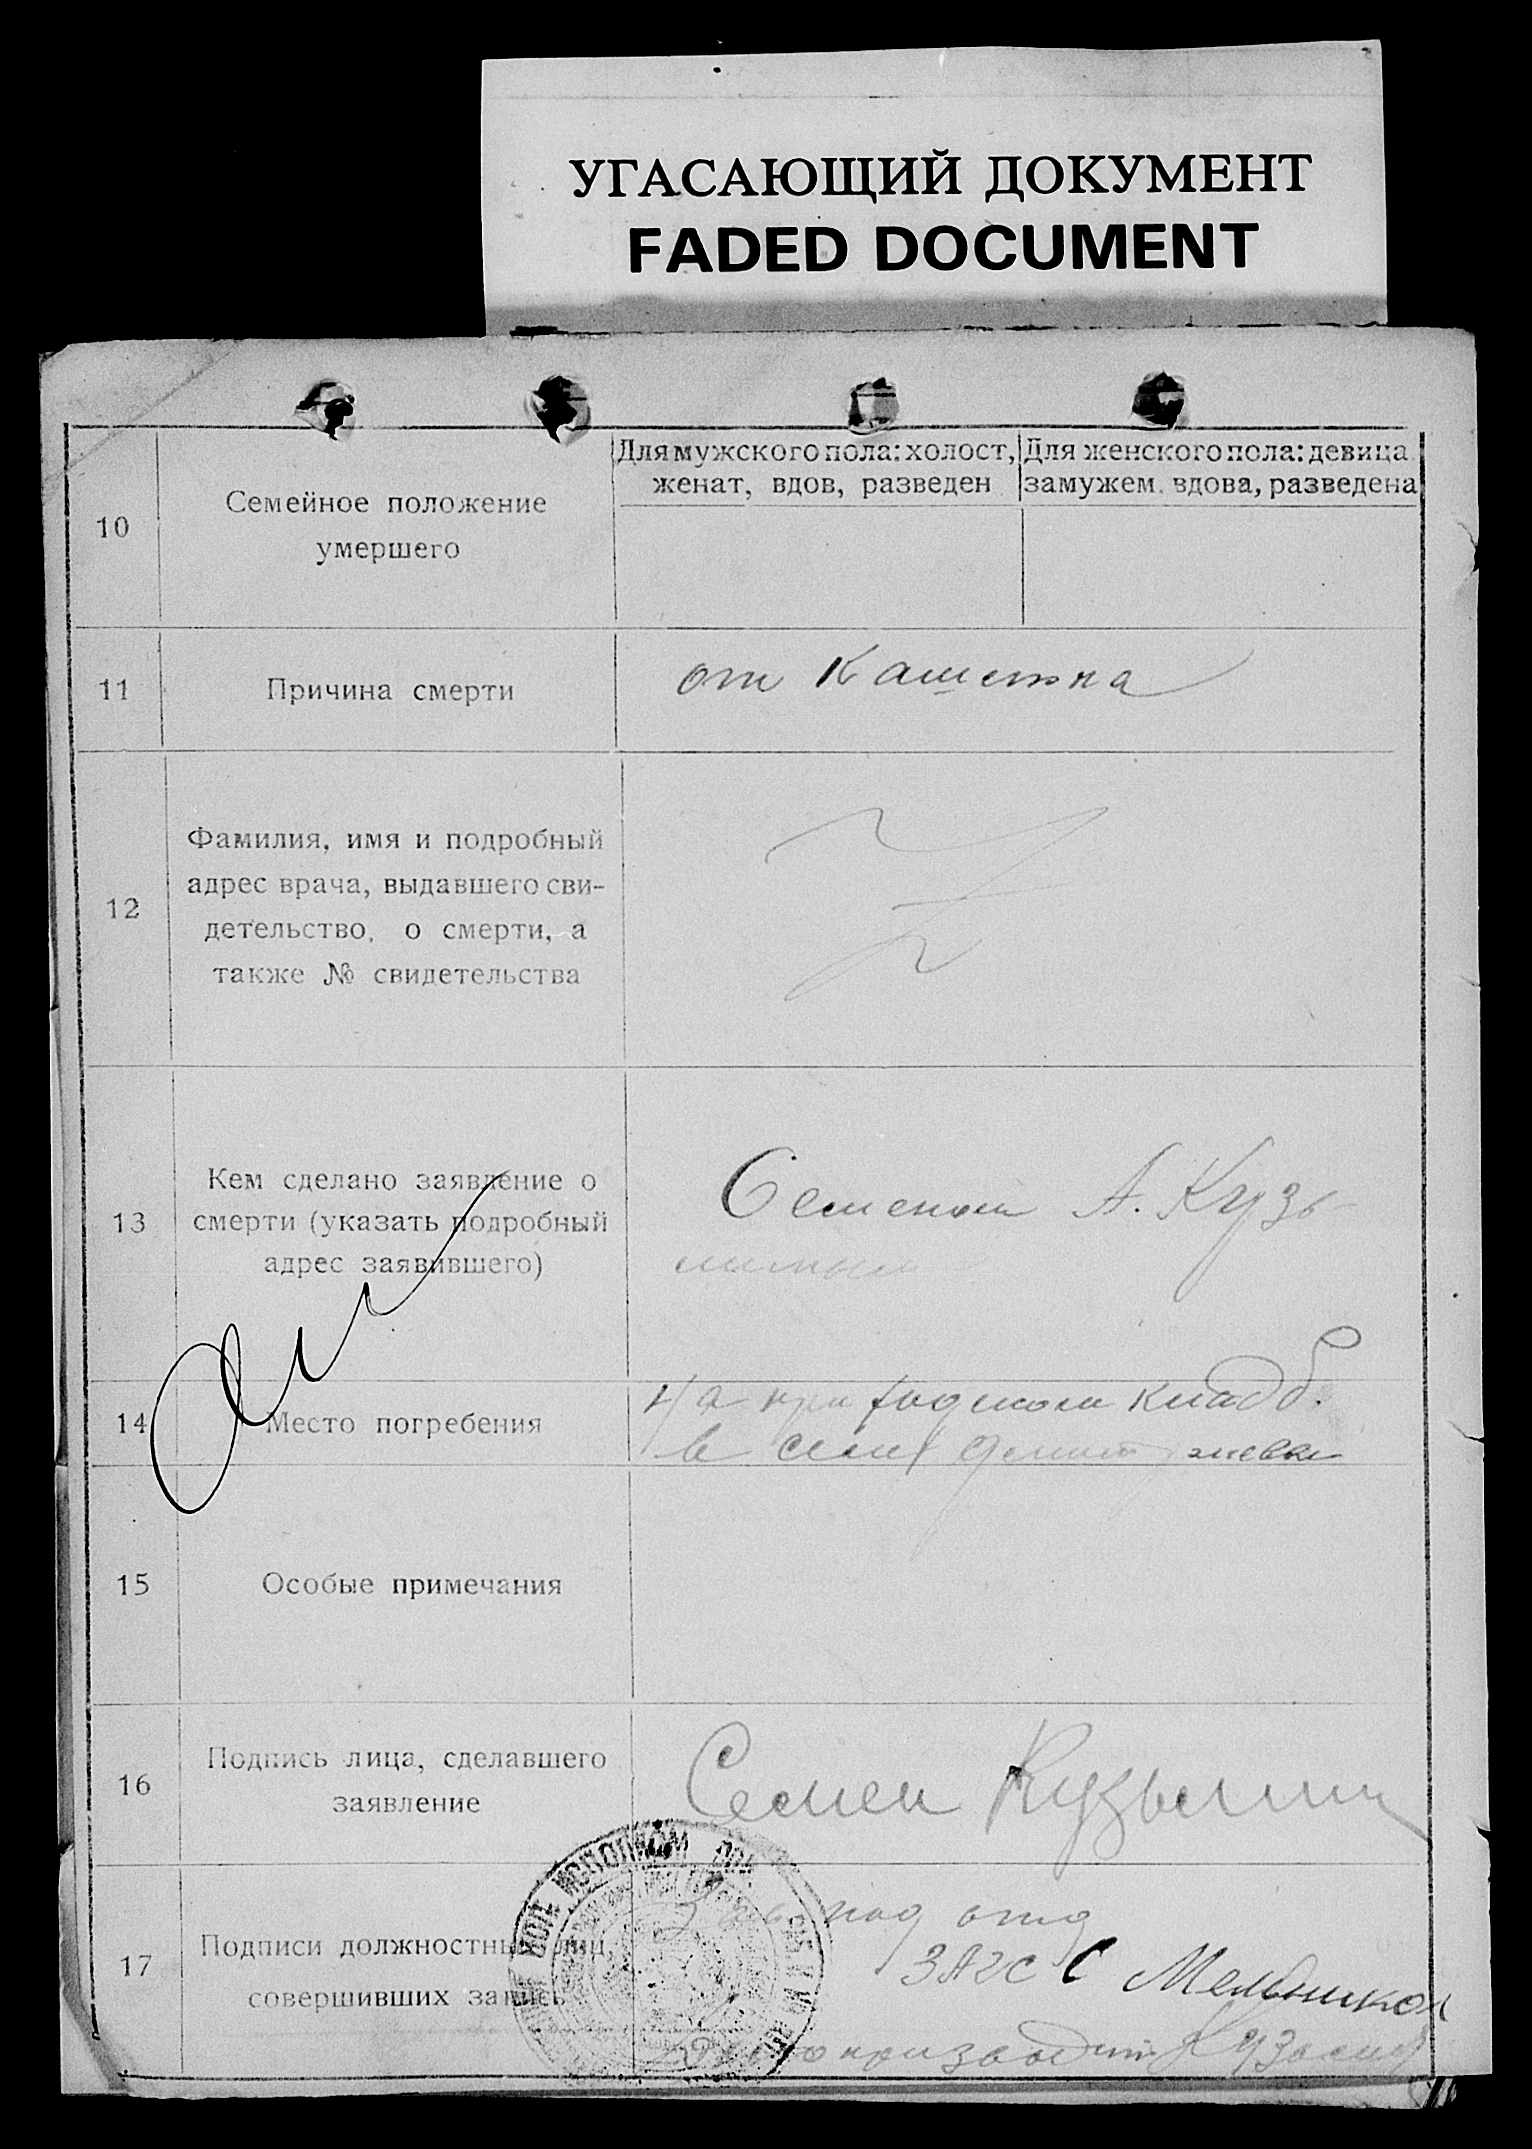 УГАСАЮЩИЙ ДОКУМЕНТ
FADED DOCUMENT
10
Семейное положение
умершего
Для мужского пола: холост,
женат, вдов, разведен
Для женского пола: девица
замужем. вдова, разведена
11
Причина смерти
от
12
Фамилия, имя и подробный
адрес врача, выдавшего сви-
детельство, о смерти, а
также № свидетельства
13
Кем сделано заявление о
смерти (указать подробный
адрес заявившего)
Семеном А. Кузь-
14
Место погребения
На кладб.
в селе
15
Особые примечания
16
Подпись лица, сделавшего
заявление
Семен Кузьмин
17
Подписи должностных лиц,
совершивших запись
Зав. под отд
ЗАГС С Мельников